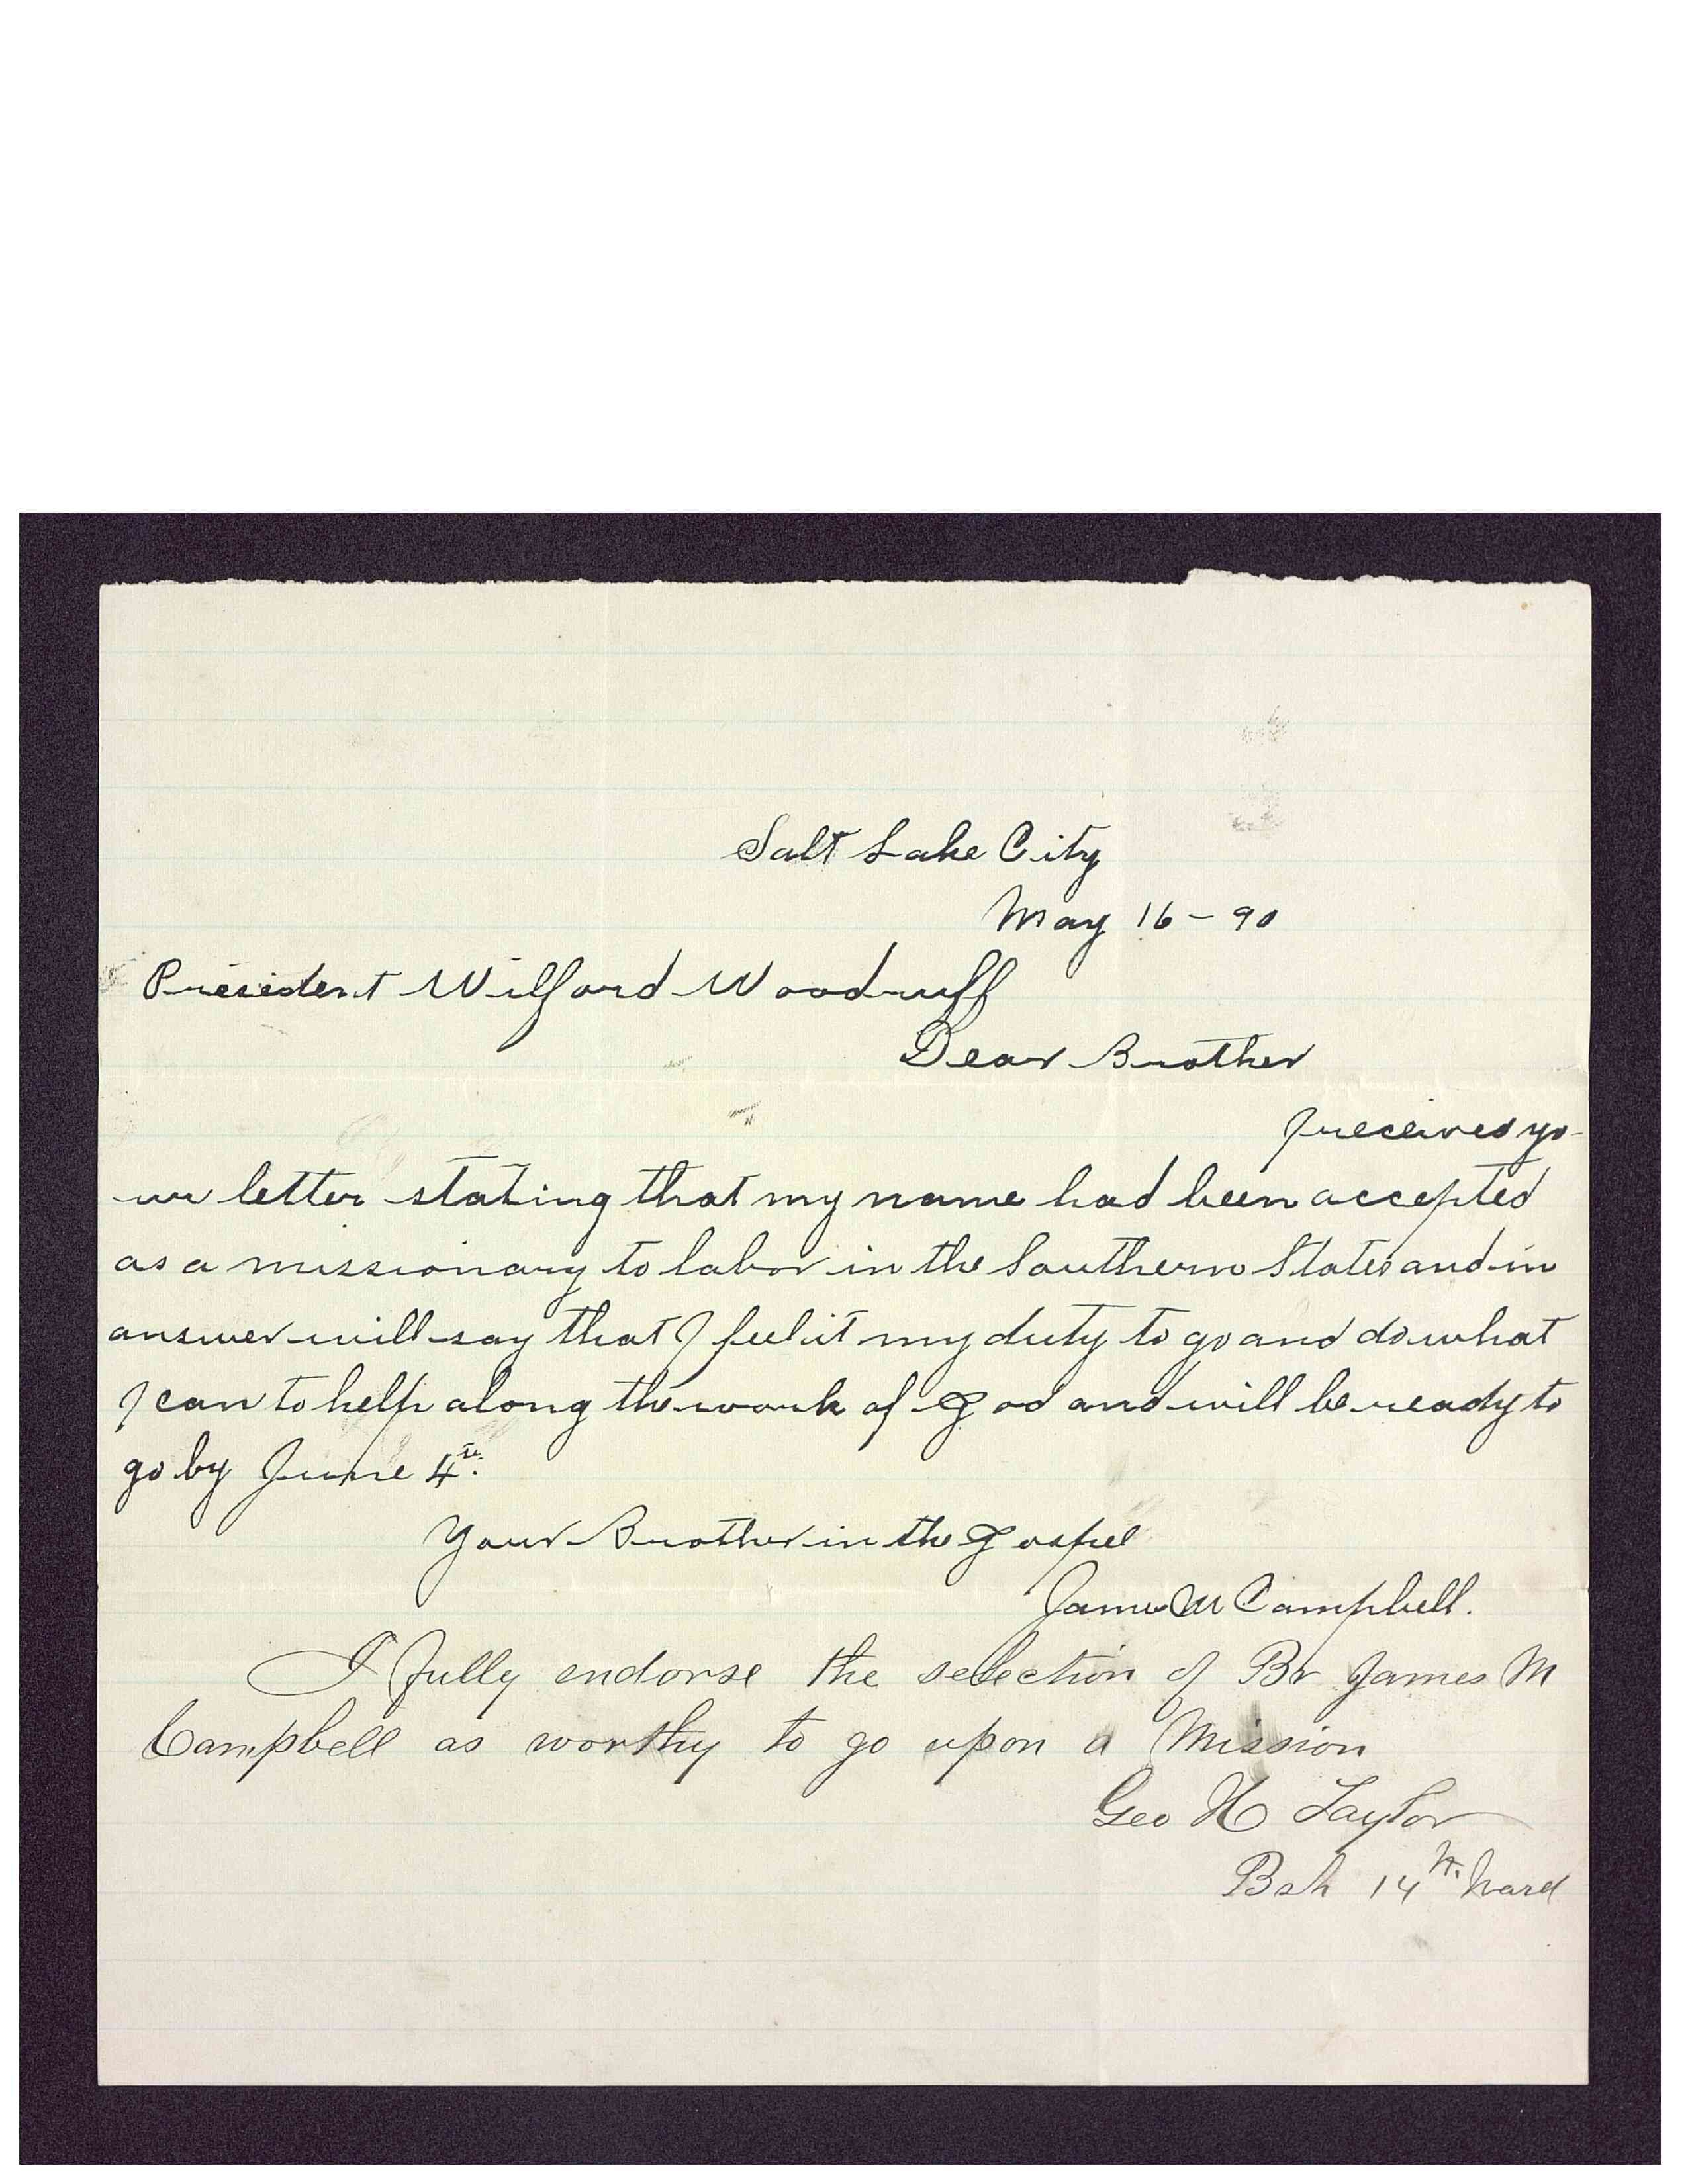 Salt Lake City
May 16 - 90
President Wilford Woodruff
Dear Brother
I received yo-
ur letter stating that my name had been accepted
as a missionary to labor in the Southern States and in
answer will say that I feel it my duty to go and do what
I can to help along the work of God and will be ready to
go by June 4th.
Your Brother in the Gospel
James M Campbell.
I fully endorse the selection of Br James M
Campbell as worthy to go upon a Mission
Geo H Taylor
Bsh 14th Ward